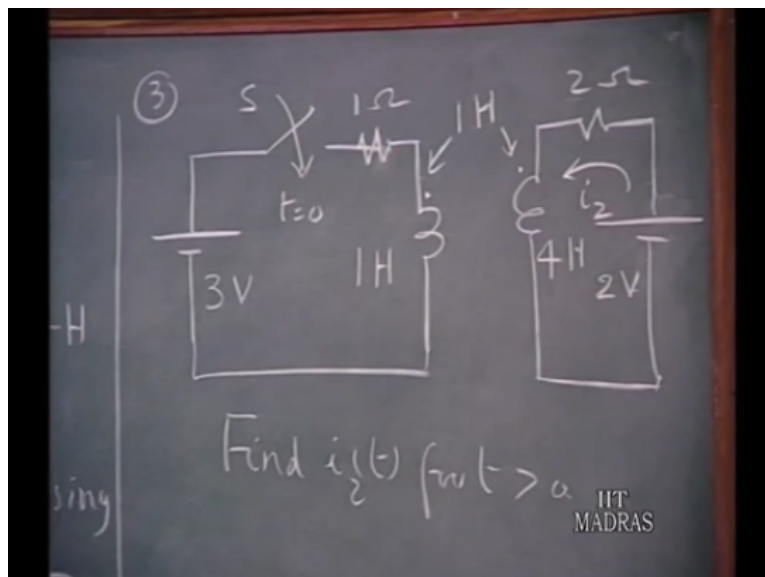 ③ S 1Ω 1H 2Ω
t=0 i₂
3V 1H 4H 2V
-H
Find i₂(t) for t > 0
sing
IIT
MADRAS